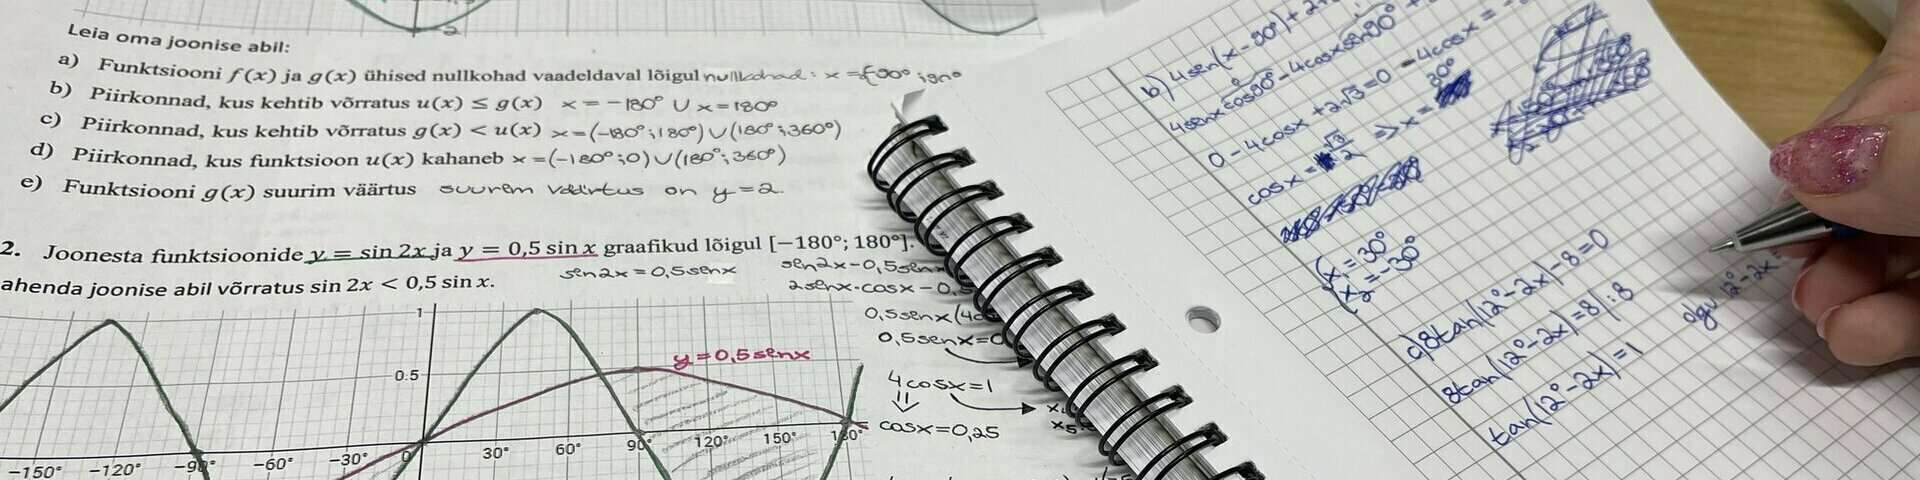 -2
Leia oma joonise abil:
a) Funktsiooni f(x) ja g(x) ühised nullkohad vaadeldaval lõigul nullkohad: x =
b) Piirkonnad, kus kehtib võrratus u(x) ≤ g(x) x = -180° ∪ x = 180°
c) Piirkonnad, kus kehtib võrratus g(x) < u(x) x = (-180°; 180°) ∪ (180°; 360°)
d) Piirkonnad, kus funktsioon u(x) kahaneb x = (-180°; 0) ∪ (180°; 360°)
e) Funktsiooni g(x) suurim väärtus suurem väärtus on y = 2.
2. Joonesta funktsioonide y = sin 2x ja y = 0,5 sin x graafikud lõigul [−180°; 180°].
ahenda joonise abil võrratus sin 2x < 0,5 sin x.
sin2x = 0,5sinx
sin2x - 0,5sinx
2sinx·cosx - 0,5
0,5sinx(4c
0,5sinx = 0
4cosx = 1
cosx = 0,25
1
0.5
y = 0,5sinx
−150° −120° −90° −60° −30° 0 30° 60° 90° 120° 150° 180°
b) 4sin(x - 90°) + 2
4sinx cos90° - 4cosx sin90° +
0 - 4cosx + 2√3 = 0 -4cosx = -
cosx = √3/2 => x = 30°
x = 30°
x2 = -30°
d) 8tan(12° - 2x) - 8 = 0
8tan(12° - 2x) = 8 | : 8
tan(12° - 2x) = 1
12° - 2x =